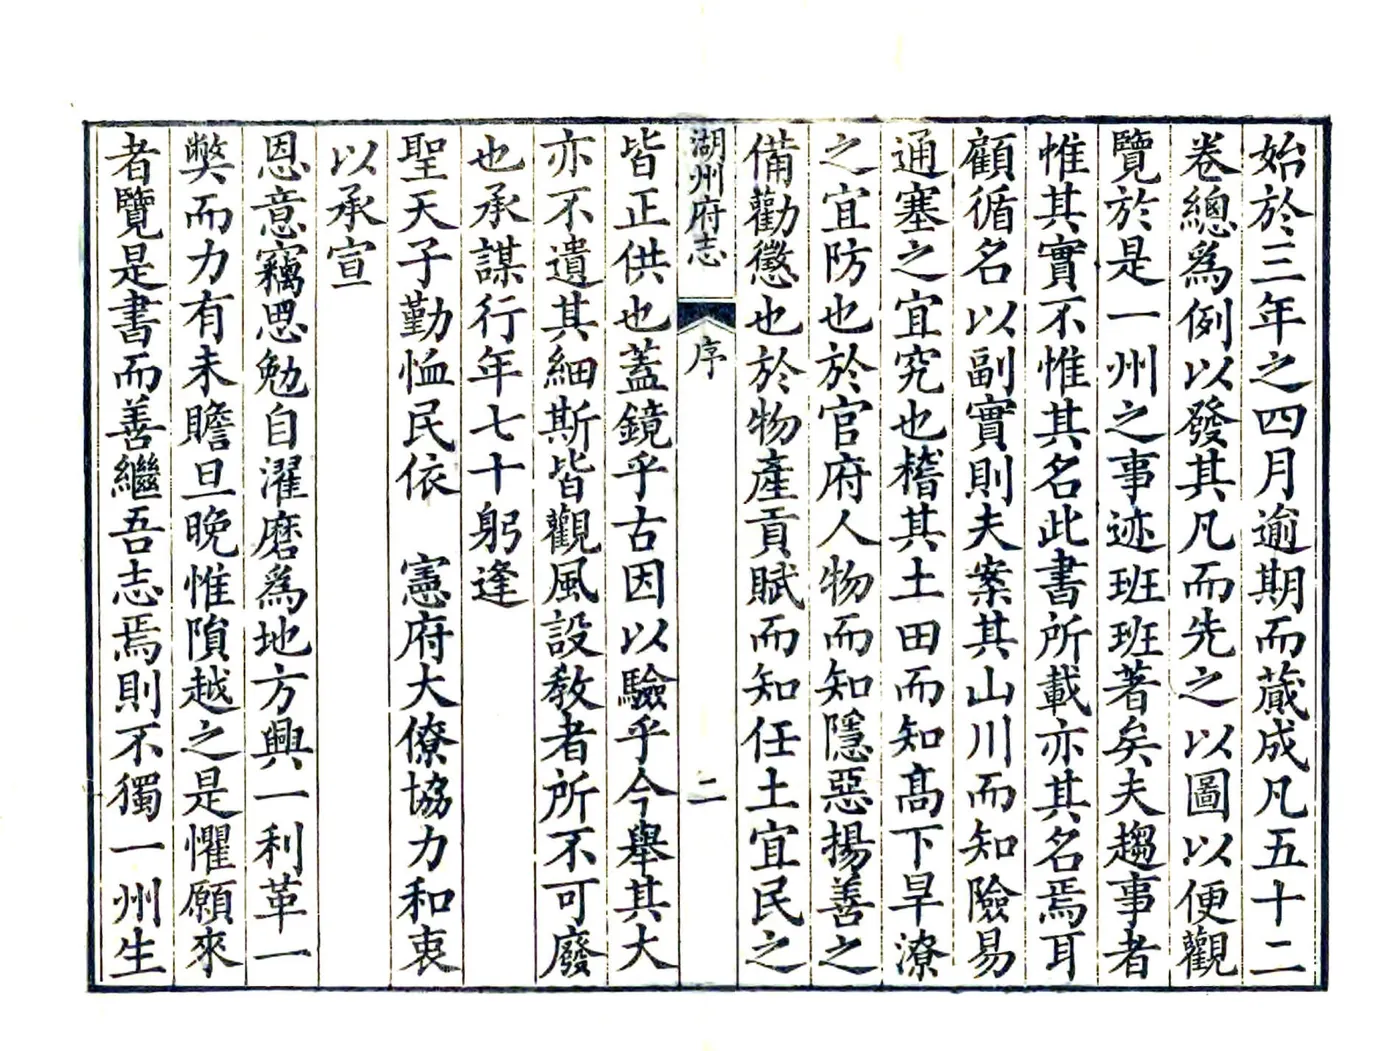 始於三年之四月逾期而蕆成凡五十二
卷總爲例以發其凡而先之以圖以便觀
覽於是一州之事迹班班著矣夫趨事者
惟其實不惟其名此書所載亦其名焉耳
顧循名以副實則夫案其山川而知險易
通塞之宜究也稽其土田而知髙下旱潦
之宜防也於官府人物而知隱惡揚善之
備勸懲也於物產貢賦而知任土宜民之
湖州府志
序
二
皆正供也蓋鏡乎古因以驗乎今舉其大
亦不遺其細斯皆觀風設教者所不可廢
也承謀行年七十躬逢
聖天子勤恤民依 憲府大僚協力和衷
以承宣
恩意竊思勉自濯磨爲地方興一利革一
弊而力有未贍旦晚惟隕越之是懼願來
者覽是書而善繼吾志焉則不獨一州生